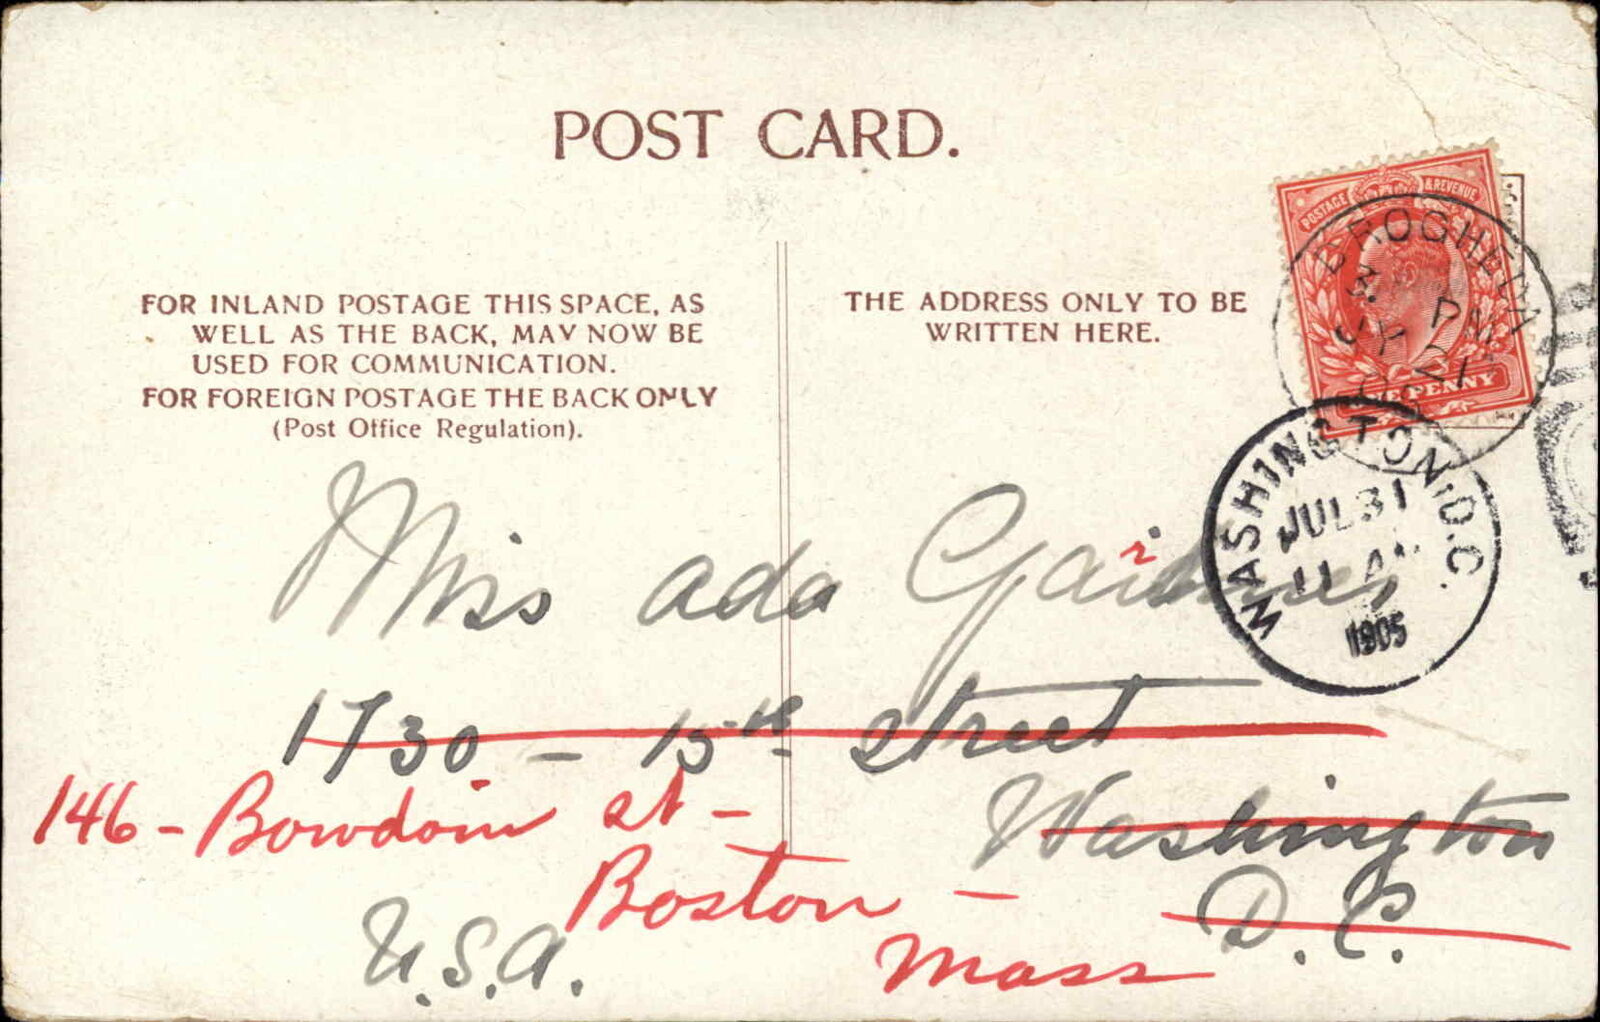 POST CARD.
FOR INLAND POSTAGE THIS SPACE, AS
WELL AS THE BACK, MAY NOW BE
USED FOR COMMUNICATION.
FOR FOREIGN POSTAGE THE BACK ONLY
(Post Office Regulation).
THE ADDRESS ONLY TO BE
WRITTEN HERE.
POSTAGE & REVENUE
ONE PENNY
DROGHEDA
3. PM
JY 21
WASHINGTON, D.C.
JUL 31
11 A
1905
Miss Ada
1730 - 15th Street
Washington
D.C.
146 - Bowdoin St -
Boston -
Mass
U.S.A.